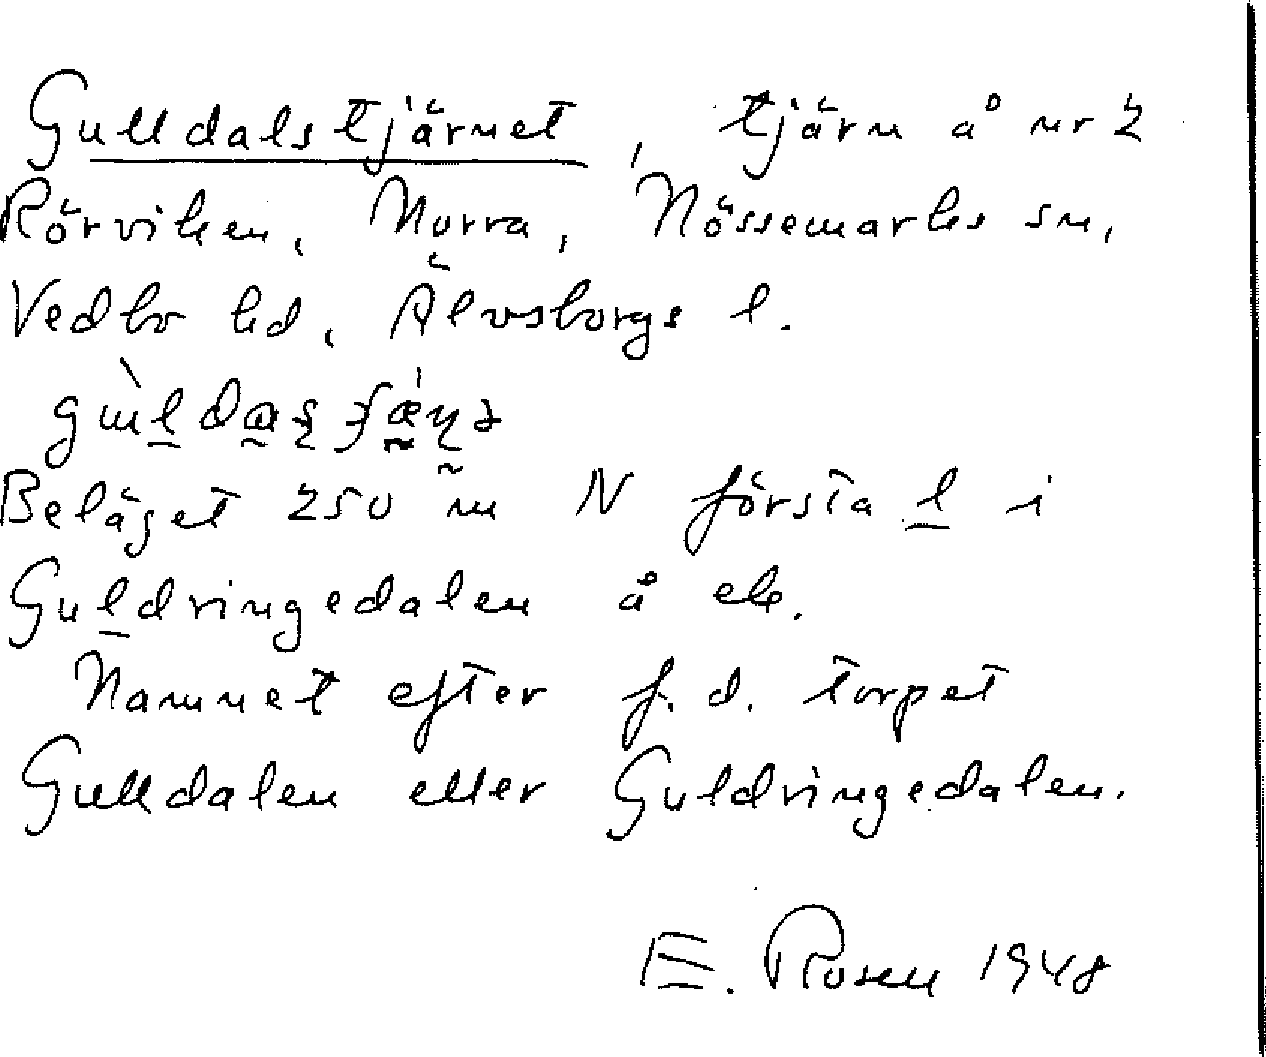 Gulldalstjärnet, tjärn å nr 2
Rörviken, Norra, Nössemarks sn,
Vedbo hd, Älvsborgs l.
Beläget 250 m N första l i
Guldringedalen å ek.
Namnet efter f.d. torpet
Gulldalen eller Guldringedalen.
E. Rosen 1948